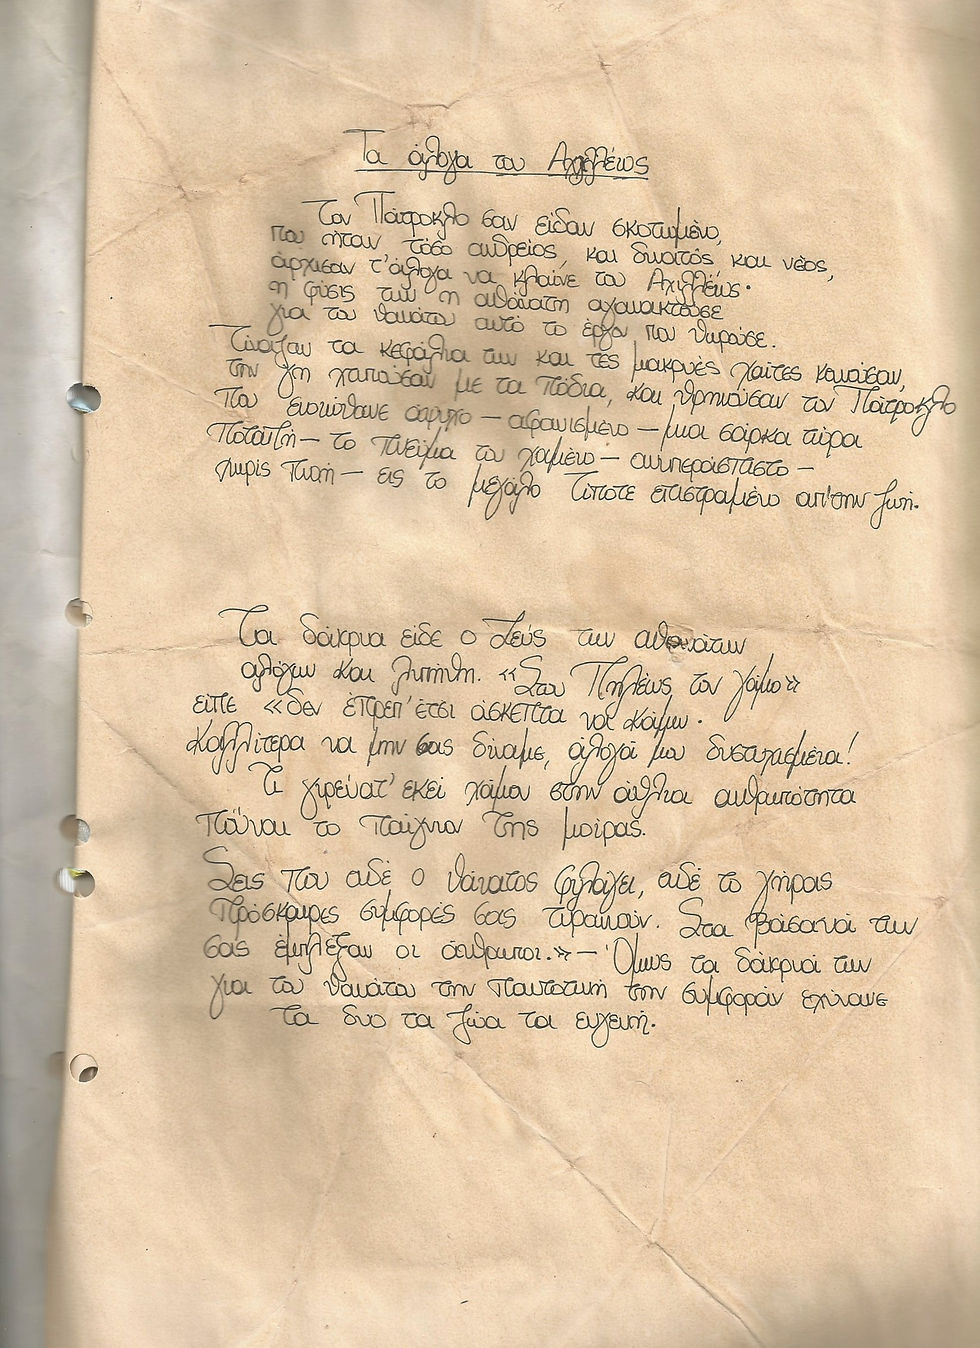 Τα άλογα του Αχιλλέως
Τον Πάτροκλο σαν είδαν σκοτωμένο,
που ήταν τόσο ανδρείος, και δυνατός και νέος,
άρχισαν τ' άλογα να κλαίνε του Αχιλλέως·
η φύσις των η αθάνατη αγανακτούσε
για του θανάτου αυτό το έργον που θωρούσε.
Τίναζαν τα κεφάλια των και τες μακρυές χαίτες κουνούσαν,
την γη χτυπούσαν με τα πόδια, και θρηνούσαν τον Πάτροκλο
που ενοιώθανε άψυχο — αφανισμένο — μια σάρκα τώρα
ποταπή — το πνεύμα του χαμένο — ανυπεράσπιστο —
χωρίς πνοή — εις το μεγάλο Τίποτε επιστραμένο απ' την ζωή.
Τα δάκρυα είδε ο Ζεύς των αθανάτων
αλόγων και λυπήθη. «Στου Πηλέως τον γάμο»
είπε «δεν έπρεπ' έτσι άσκεπτα να κάμω·
Καλλίτερα να μην σας δίναμε, άλογά μου δυστυχισμένα!
Τι γυρεύατ' εκεί χάμου στην άθλια ανθρωπότητα
πώναι το παίγνιον της μοίρας.
Σεις που ουδέ ο θάνατος φυλάγει, ουδέ το γήρας
πρόσκαιρες συμφορές σας τυραννούν. Στα βάσανά των
σας έμπλεξαν οι άνθρωποι.» — Όμως τα δάκρυά των
για του θανάτου την παντοτινή την συμφοράν εχύνανε
τα δυο τα ζώα τα ευγενή.